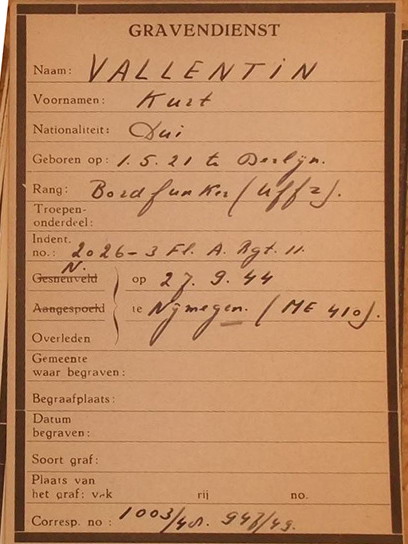 GRAVENDIENST
Naam: VALLENTIN
Voornamen: Kurt
Nationaliteit: Dui
Geboren op: 1.5.21 te Berlyn.
Rang: Bordfunker (Uffz).
Troepen-
onderdeel:
Indent.
no.: 2026-3 Fl. A. Rgt. 11.
N.
Gesneuveld op 27.9.44
Aangespoeld te Nijmegen. (ME 410).
Overleden
Gemeente
waar begraven:
Begraafplaats:
Datum
begraven:
Soort graf:
Plaats van
het graf: vak rij no.
Corresp. no: 1003/48. 947/49.